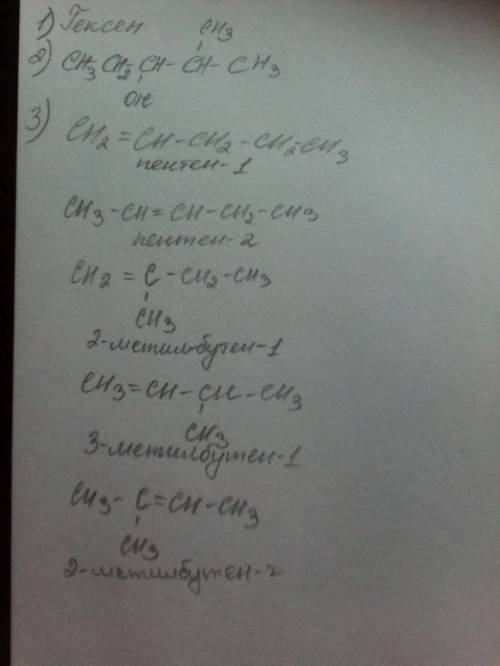 1) Гексен
CH3
2) CH3 CH2 CH - CH - CH3
OH
3) CH2 = CH - CH2 - CH2 - CH3
пентен-1
CH3 - CH = CH - CH2 - CH3
пентен-2
CH2 = C - CH2 - CH3
CH3
2-метил-бутен-1
CH3 = CH - CH - CH3
CH3
3-метилбутен-1
CH3 - C = CH - CH3
CH3
2-метилбутен-2